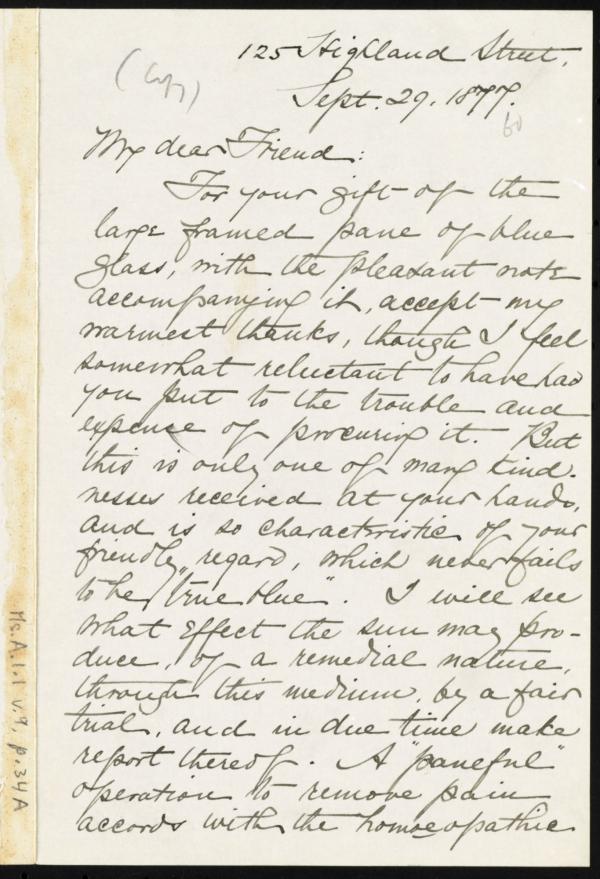 125 Highland Street,
(Copy)
Sept. 29, 1877.
60
My dear Friend:
For your gift of the
large framed pane of blue
glass, with the pleasant note
accompanying it, accept my
warmest thanks, though I feel
somewhat reluctant to have had
you put to the trouble and
expense of procuring it. But
this is only one of many kind-
nesses received at your hands,
and is so characteristic of your
friendly regard, which never fails
to be "true blue". I will see
what effect the sun may pro-
duce, of a remedial nature,
through this medium, by a fair
trial, and in due time make
report thereof. A "paneful"
operation to remove pain
accords with the homoeopathic
Ms. A. 1. 1 v. 9, p. 34A